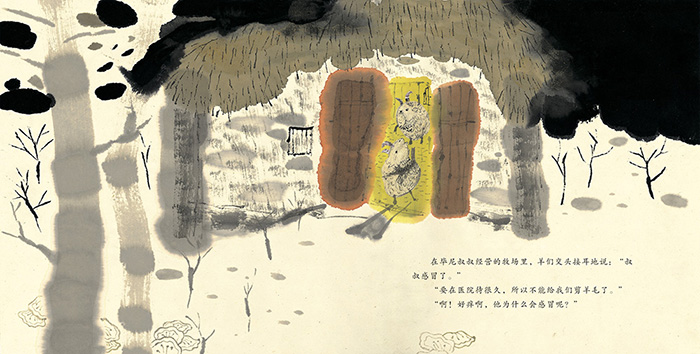 在毕尼叔叔经营的牧场里，羊们交头接耳地说：“叔
叔感冒了。”
“要在医院待很久，所以不能给我们剪羊毛了。”
“啊！好痒啊，他为什么会感冒呢？”